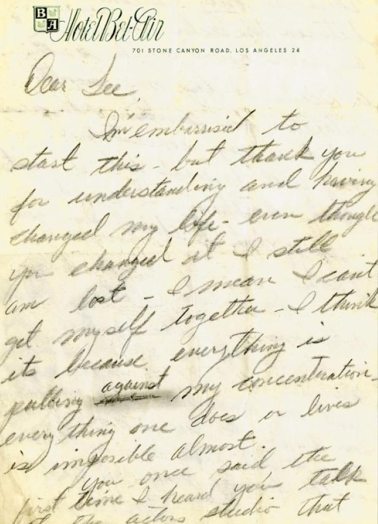 BA Hotel Bel-Air
701 STONE CANYON ROAD, LOS ANGELES 24
Dear Lee,
I'm embarrisid to
start this - but thank you
for understanding and having
changed my life - even though
you changed it I still
am lost - I mean I can't
get myself together - I think
its because everything is
pulling against my concentration -
every thing one does or lives
is imposible almost.
You once said the
first time I heard you talk
at the actors studio that